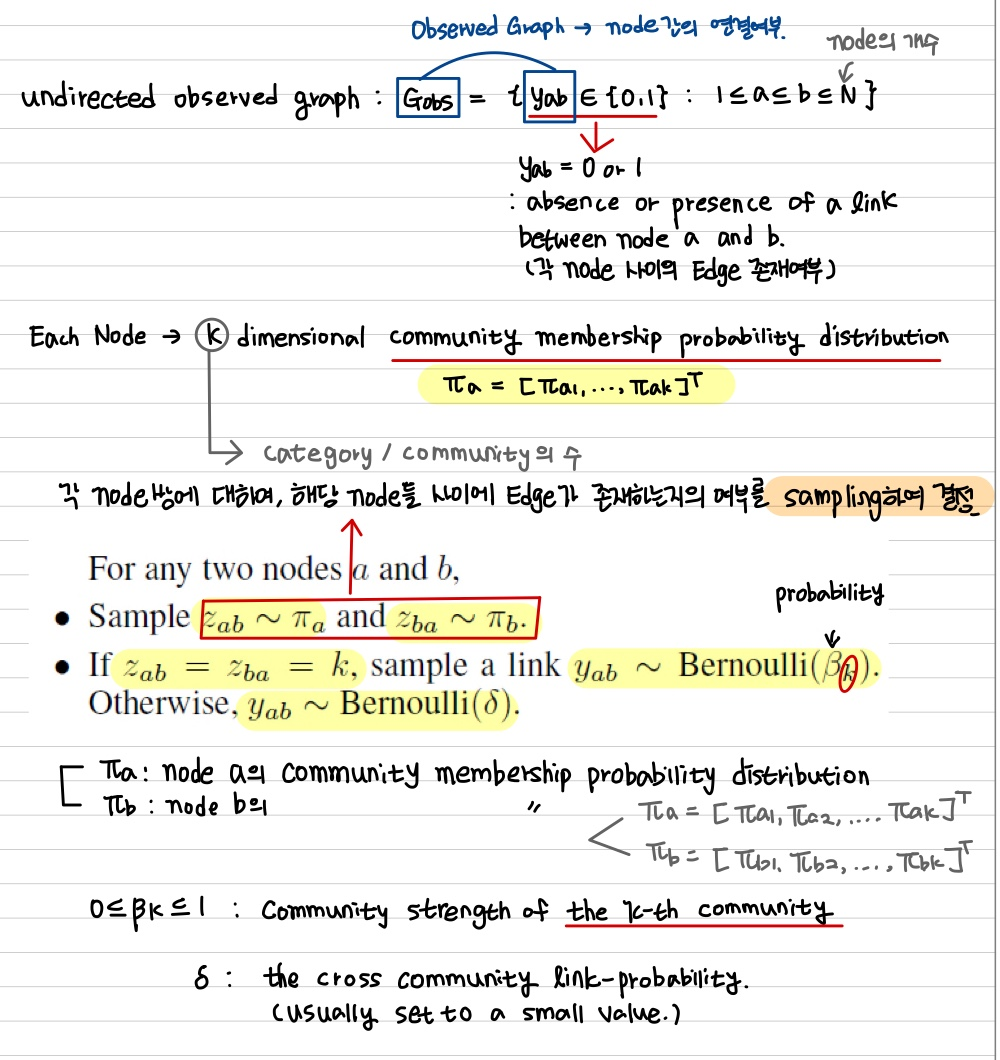 Observed Graph → node간의 연결여부.
node의 개수
undirected observed graph : Gobs = { yab ∈ {0,1} : 1 ≤ a ≤ b ≤ N }
yab = 0 or 1
: absence or presence of a link
between node a and b.
(각 node 사이의 Edge 존재여부)
Each Node → k dimensional community membership probability distribution
πa = [πa1, ..., πak]ᵀ
category / community의 수
각 node쌍에 대하여, 해당 node들 사이에 Edge가 존재하는지의 여부를 sampling하여 결정
For any two nodes a and b,
probability
• Sample zab ∼ πa and zba ∼ πb.
• If zab = zba = k, sample a link yab ∼ Bernoulli(βk).
Otherwise, yab ∼ Bernoulli(δ).
πa : node a의 community membership probability distribution
πb : node b의 〃
πa = [πa1, πa2, .... πak]ᵀ
πb = [πb1, πb2, ...., πbk]ᵀ
0 ≤ βk ≤ 1 : Community strength of the k-th community
δ : the cross community link-probability.
(usually set to a small value.)